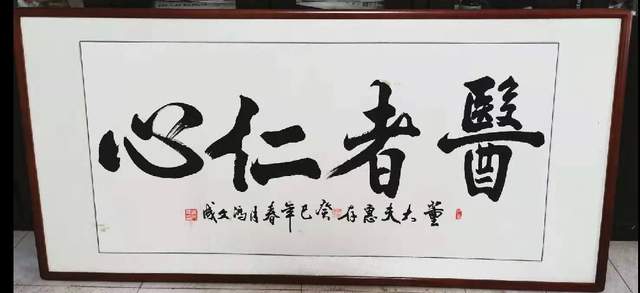 醫者仁心
董大夫惠存 癸巳年春月 冯文成